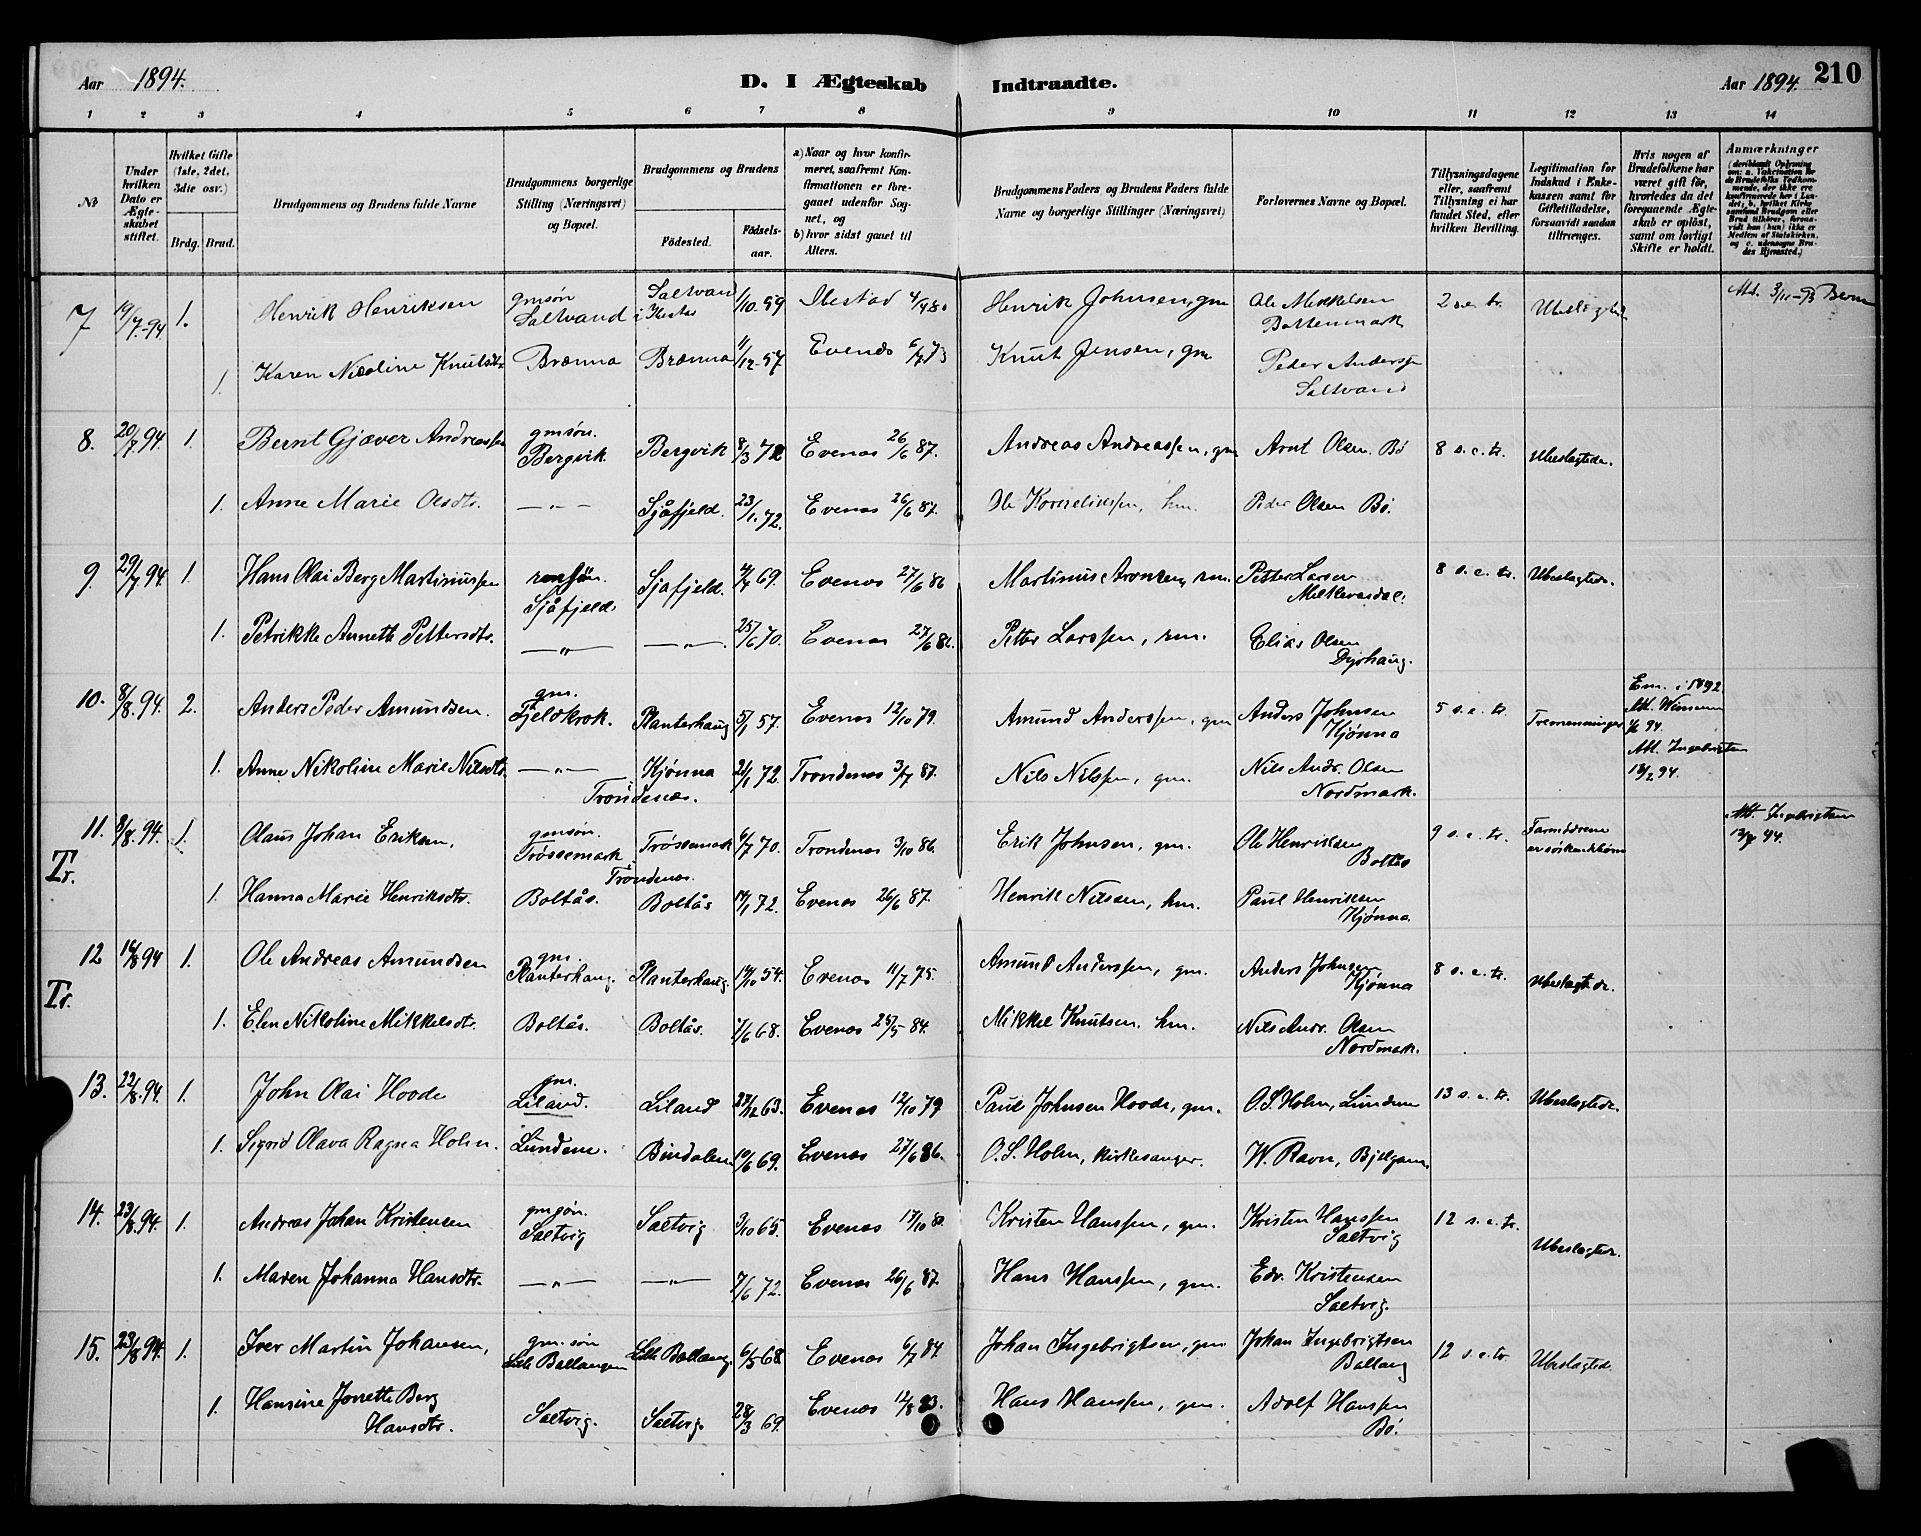 Aar 1894.
D. I Ægteskab Indtraadte.
Aar 1894. 210
1 2 3 4 5 6 7 8 9 10 11 12 13 14
No
Under hvilken Dato er Ægteskabet stiftet.
Hvilket Gifte (1ste, 2det, 3die osv.)
Brdg. Brud.
Brudgommens og Brudens fulde Navne
Brudgommens borgerlige Stilling (Næringsvei) og Bopæl.
Brudgommens og Brudens
Fødested. Fødselsaar.
a) Naar og hvor konfirmeret, saafremt Konfirmationen er foregaaet udenfor Sognet, og
b) hvor sidst gaaet til Alters.
Brudgommens Faders og Brudens Faders fulde Navne og borgerlige Stillinger (Næringsvei)
Forlovernes Navne og Bopæl.
Tillysningsdagene eller, saafremt Tillysning ei har fundet Sted, efter hvilken Bevilling.
Legitimation for Indskud i Enkekassen samt for Giftetilladelse, forsaavidt saadan tiltrænges.
Hvis nogen af Brudefolkene har været gift før, hvorledes da det foregaaende Ægteskab er opløst, samt om lovligt Skifte er holdt.
Anmærkninger
7 19/7-94 1. Henrik Henriksen gmsøn Saltvand Saltvand i 1/10-59 4/9 80 Henrik Johnsen, gm Ole Mikkelsen Bottenmark 2 s.e.tr. Ubeslægted
1. Karen Nicoline Knutsdtr Brænna Brænna 11/12-57 Evenes 6/7 73 Knut Jensen, gm Peder Anderssen Saltvand
8. 20/7 94 1. Bernt Gjæver Andreassen gmsøn. Bergvik. Bergvik 8/3 72 Evenes 26/6 87. Andreas Andreassen, gm Arnt Olsen Bø 8 s.e.tr. Ubeslægtede.
1. Anne Marie Olsdtr. —„— Sjåfjeld. 23/1. 72. Evenes 26/6 87. Ole Korneliussen, hm. Peder Olsen Bø.
9. 29/7 94 1. Hans Olai Berg Martinussen rmsøn. Sjåfjeld Sjåfjeld. 4/4 69. Evenes 27/6 86 Martinus Aronsen, rm. Petter Larsen Melkevardal. 8 s.e.tr. Ubeslægtede.
1. Petrikke Anneth Pettersdtr. —„— —„— 25/6 70. Evenes 27/6 86. Petter Larssen, rm. Elias Olsen Dyrhaug.
10. 8/8. 94. 2. Anders Peder Amundsen. gm. Fjeldkrok. Planterhaug 5/1 57. Evenes 12/10 79. Amund Anderssen, gm Anders Johnsen Kjønna 5 s.e.tr. Tremenninger Em. i 1892
1. Anne Nikoline Marie Nilsdtr. —„— Kjønna Trondenæs. 21/1 72. Trondenes 3/7 87. Nils Nilssen, gm. Nils Andr. Olsen Nordmark. Att. Ingebrigtsen
11. Tr. 8/8. 94. 1. Olaus Johan Eriksen, gmsøn. Trøssemark. Trondenæs. Trøssemark 6/7 70. Trondenes 3/10 86. Erik Johnsen, gm. Ole Henriksen Boltås 9 s.e.tr. Farmødrene er søskendebørn Att. Ingebrigtsen
1. Hanna Marie Henriksdtr. Boltås. Boltås 14/1 72. Evenes 26/6 87. Henrik Nilsen, hm. Paul Henriksen Kjønna.
12 Tr. 16/8 94 1. Ole Andreas Amundsen gm. Planterhaug. Planterhaug. 14/10 54. Evenes 11/7 75. Amund Anderssen, gm. Anders Johnsen, Kjønna 8 s.e.tr. Ubeslægtede.
1. Elen Nikoline Mikkelsdtr. Boltås. Boltås. 1/6 68. Evenes 25/5 84. Mikkel Knutsen. hm. Nils Andr. Olsen Nordmark.
13. 22/8. 94. 1. John Olai Hovde gm. Liland. Liland 27/12 63. Evenes 12/10 79 Paul Johnsen Hovde, gm. O.S. Holm, Lundene 13 s.e.tr. Ubeslægtede.
1. Sigrid Olava Ragna Holm. Lundene. Bindalen 10/6 69. Evenes 27/6 86. O.S. Holm, kirkesanger. W. Ravn,
14. 23/8. 94. 1. Andreas Johan Kristensen gmsøn. Saltvig Saltvig 3/10 65. Evenes 17/10 80. Kristen Hanssen, gm. Kristen Hanssen Saltvig 12 s.e.tr. Ubeslægtede.
1. Maren Johanna Hansdtr. —„— —„— 7/6 72. Evenes 26/6 87. Hans Hanssen, gm. Edv. Kristensen Saltvig.
15. 23/8 94. 1. Iver Martin Johansen, gm. søn Lille Ballangen Lille Ballang. 6/5 68. Evenes 6/7 84. Johan Ingebrigtsen, gm Johan Ingebrigtsen Ballang 12 s.e.tr. Ubeslægtede.
1. Hansine Jorrette Berg Hansdtr. Saltvig. Saltvig. 28/3 69. Evenes 12/8 83. Hans Hanssen, gm. Adolf Hanssen Bø.